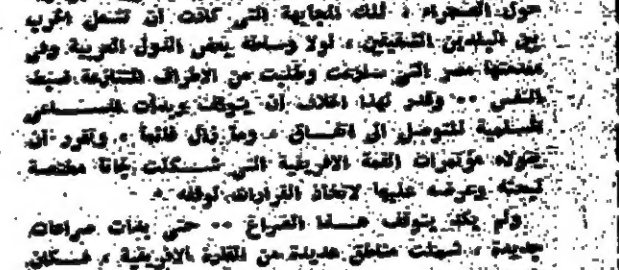 حول الصحراء ، تلك المجابهة التي كادت أن تشعل الحرب
بين البلدين الشقيقين ، لولا وساطة بعض الدول العربية وفي
مقدمتها مصر التي سارعت وطلبت من الاطراف المتنازعة ضبط
النفس ٠٠ وقدر لهذا الخلاف أن يتوقف وبدأت المساعي
السلمية للتوصل الى اتفاق ، وما زال قائما ، وتقرر أن
مؤتمرات القمة الافريقية التي شكلت لجانا مختصة
لبحثه وعرضه عليها لاتخاذ القرارات لوقفه ٠
ولم يكد يتوقف هذا الصراع ٠٠ حتى بدأت صراعات
جديدة ، شملت مناطق عديدة من القارة الافريقية ، فكان